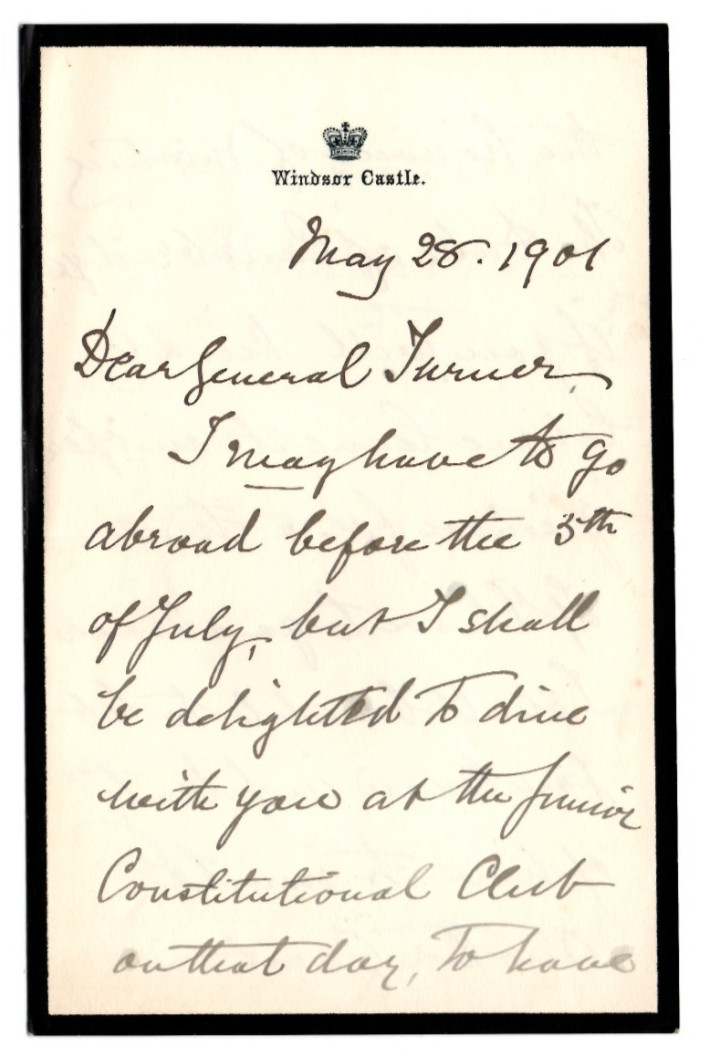 Windsor Castle.
May 28. 1901
Dear General Turner,
I may have to go
abroad before the 5th
of July, but I shall
be delighted to dine
with you at the Junior
Constitutional Club
on that day, to have